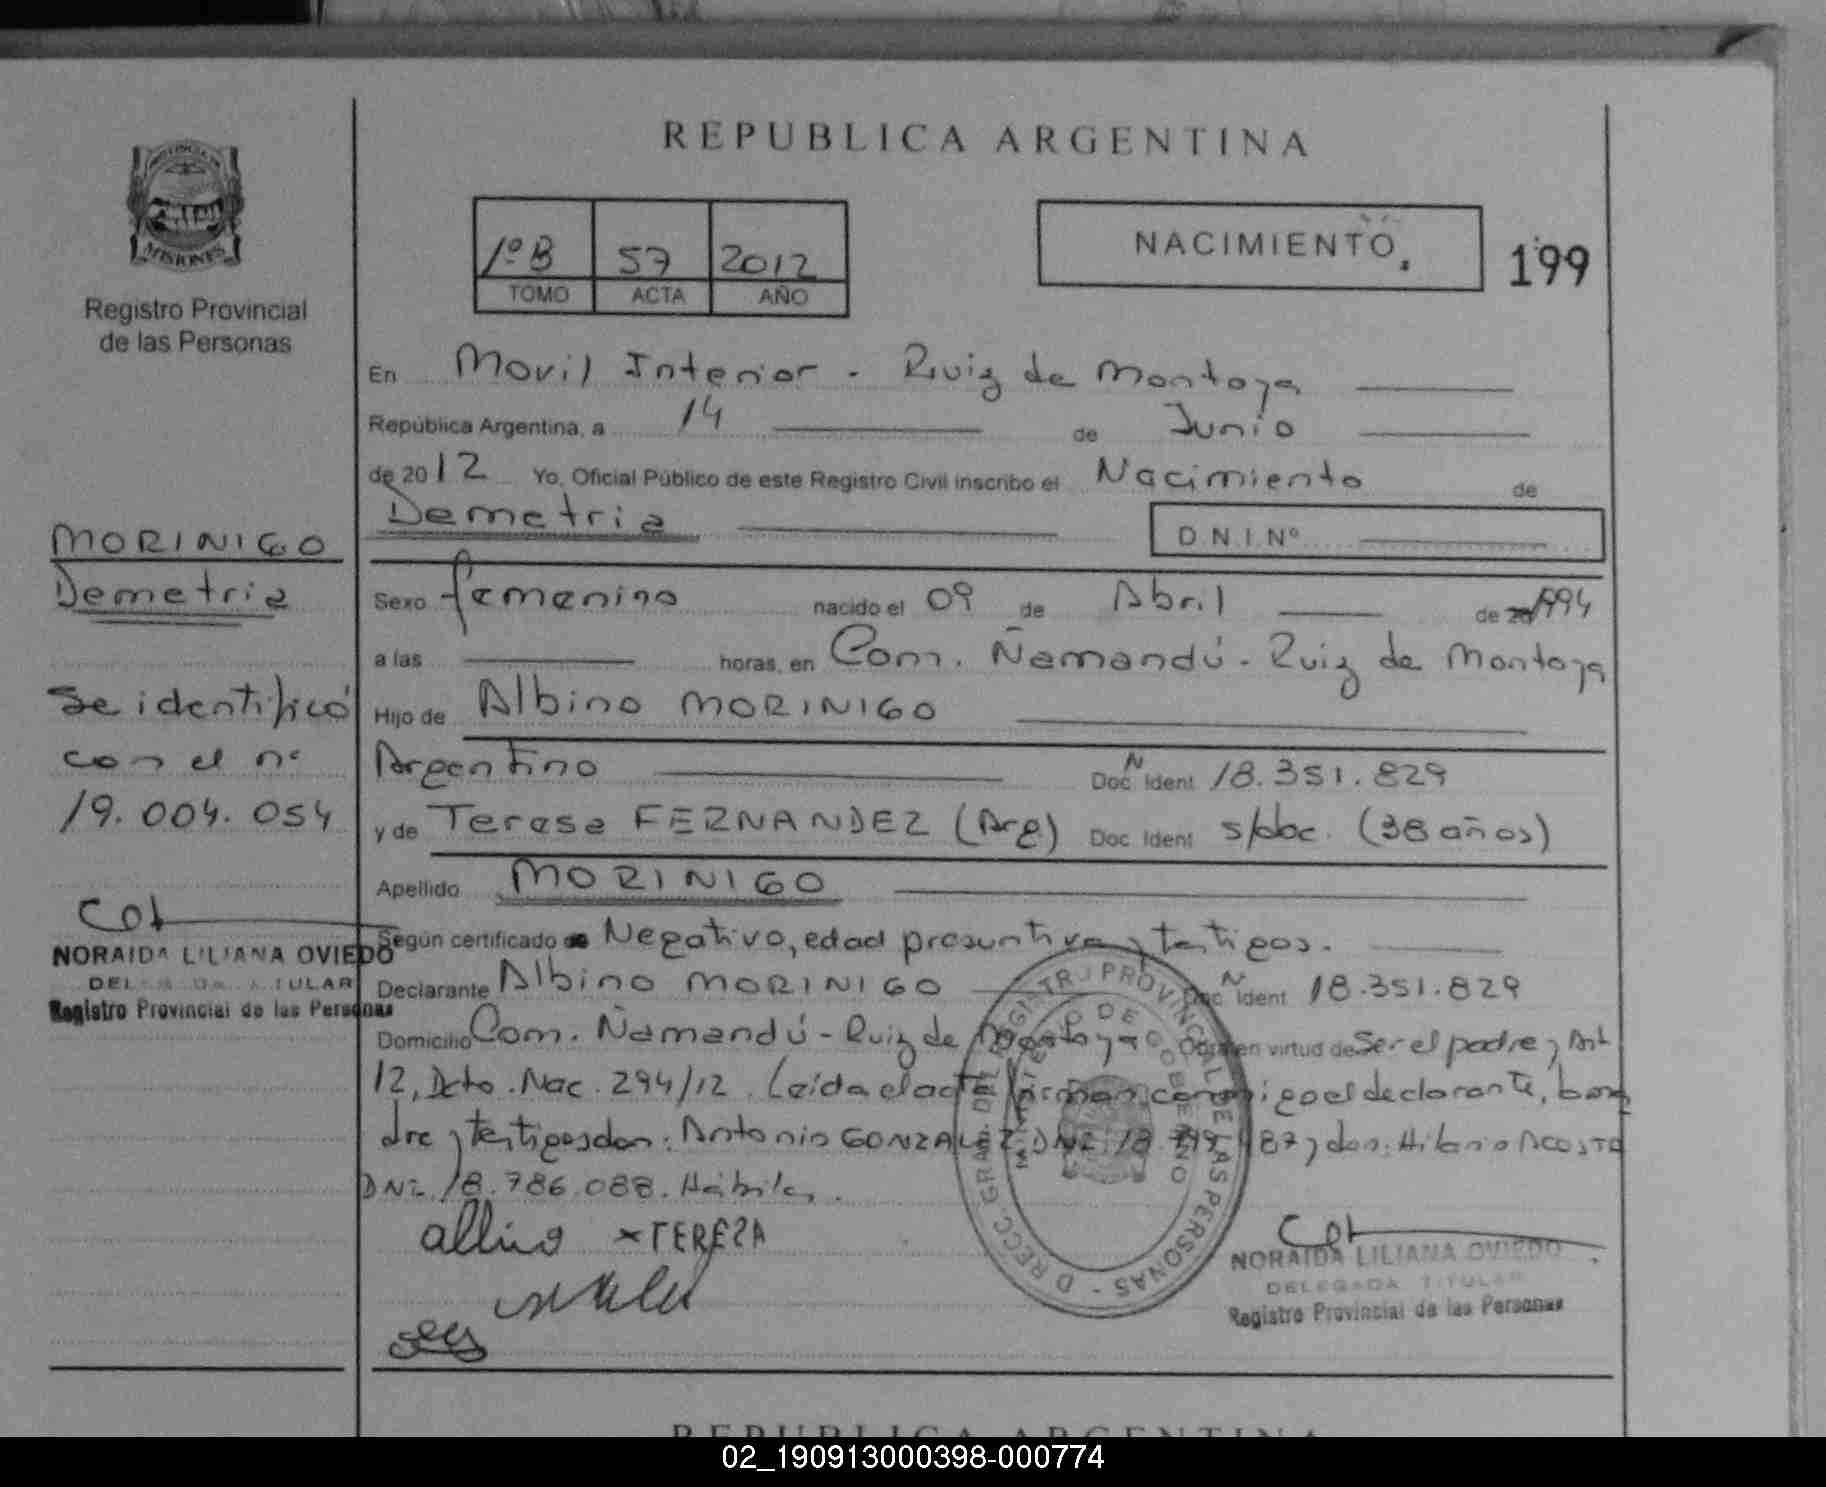 REPUBLICA ARGENTINA
PROVINCIA DE
MISIONES
Registro Provincial
de las Personas
1º B 57 2012
TOMO ACTA AÑO
NACIMIENTO
199
En Movil Interior - Ruiz de Montoya
República Argentina, a 14 de Junio
de 2012 Yo, Oficial Público de este Registro Civil inscribo el Nacimiento de
Demetria
D.N.I.Nº
MORINIGO
Demetria
Sexo femenino nacido el 09 de Abril de 1994
a las horas, en Com. Ñamandú - Ruiz de Montoya
Hijo de Albino MORINIGO
Argentino Doc. Ident N 18.351.829
y de Teresa FERNANDEZ (Arg) Doc. Ident s/doc. (38 años)
Apellido MORINIGO
Se identificó
con el nº
19.004.054
NORAIDA LILIANA OVIEDO
DELEGADA TITULAR
Registro Provincial de las Personas
Según certificado Negativo, edad presuntiva y testigos.
Declarante Albino MORINIGO Doc. Ident N 18.351.829
Domicilio Com. Ñamandú - Ruiz de Montoya Obra en virtud de Ser el padre y Art
12, Dcto. Nac. 294/12. Leída el acta firman conmigo el declarante, la ma
dre y testigos don: Antonio GONZALEZ DNI 18. 87 y don: Hilario ACOSTA
DNI 18.786.088. Hábiles.
albino x TEREZA
DIRECC. GRAL. DEL REGISTRO PROVINCIAL DE LAS PERSONAS
MINISTERIO DE GOBIERNO
NORAIDA LILIANA OVIEDO
DELEGADA TITULAR
Registro Provincial de las Personas
REPUBLICA ARGENTINA
02_190913000398-000774